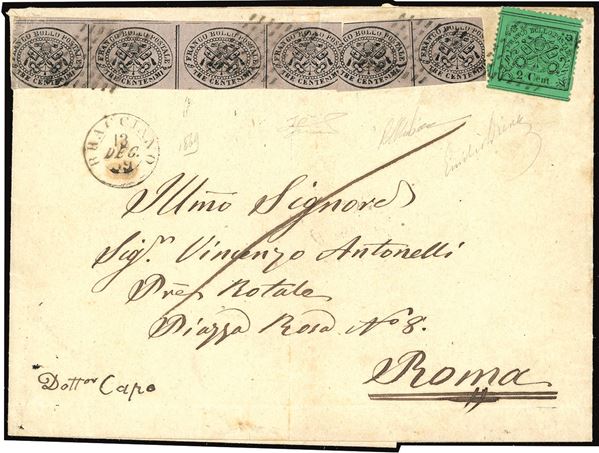 FRANCO BOLLO POSTALE TRE CENTESIMI
FRANCO BOLLO POSTALE TRE CENTESIMI
FRANCO BOLLO POSTALE TRE CENTESIMI
FRANCO BOLLO POSTALE TRE CENTESIMI
FRANCO BOLLO POSTALE TRE CENTESIMI
FRANCO BOLLO POSTALE TRE CENTESIMI
2 Cent
BRACCIANO
13
DEC.
69
1869
Illmo Signore
Sigr. Vincenzo Antonelli
Pre Rotale
Piazza Rosa No 8.
Roma
Dottor Capo